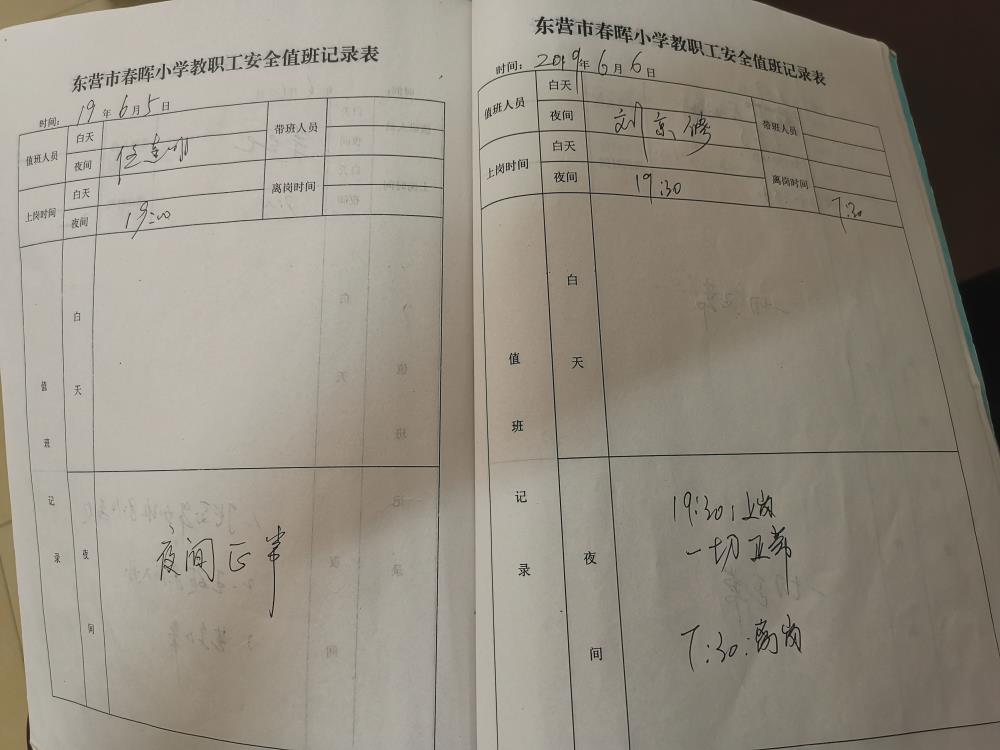 东营市春晖小学教职工安全值班记录表
时间：19年6月5日
值班人员 白天 带班人员
夜间
上岗时间 白天 离岗时间
夜间 19:00
值班记录 白天
夜间 夜间正常
东营市春晖小学教职工安全值班记录表
时间：2019年6月6日
值班人员 白天 带班人员
夜间 刘京德
上岗时间 白天 离岗时间
夜间 19:30 7:30
值班记录 白天
夜间 19:30:上岗
一切正常
7:30:离岗